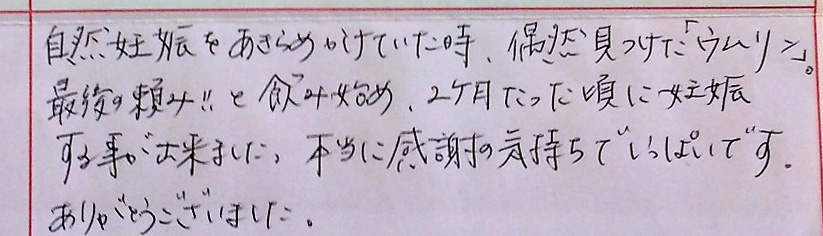 自然妊娠をあきらめかけていた時、偶然見つけた「ウムリン」。
最後の頼み!!と飲み始め、2ケ月たった頃に妊娠
する事が出来ました。本当に感謝の気持ちでいっぱいです。
ありがとうございました。